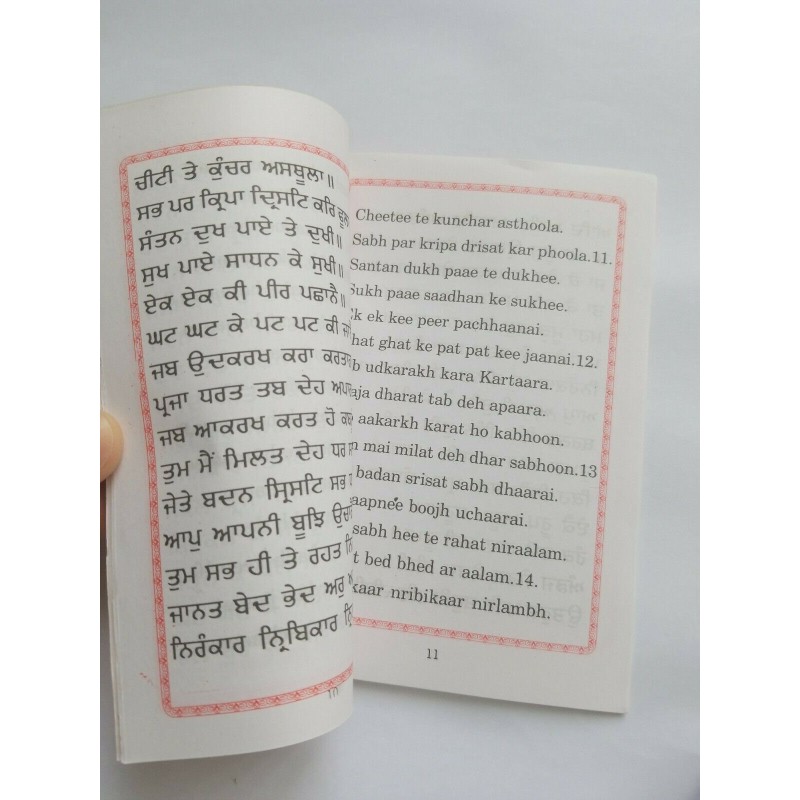 ਚੀਟੀ ਤੇ ਕੁੰਚਰ ਅਸਥੂਲਾ॥
ਸਭ ਪਰ ਕ੍ਰਿਪਾ ਦ੍ਰਿਸਟਿ ਕਰਿ
ਸੰਤਨ ਦੁਖ ਪਾਏ ਤੇ ਦੁਖੀ॥
ਸੁਖ ਪਾਏ ਸਾਧਨ ਕੇ ਸੁਖੀ॥
ਏਕ ਏਕ ਕੀ ਪੀਰ ਪਛਾਨੈ॥
ਘਟ ਘਟ ਕੇ ਪਟ ਪਟ ਕੀ
ਜਬ ਉਦਕਰਖ ਕਰਾ
ਪ੍ਰਜਾ ਧਰਤ ਤਬ ਦੇਹ
ਜਬ ਆਕਰਖ ਕਰਤ ਹੋ
ਤੁਮ ਮੈਂ ਮਿਲਤ ਦੇਹ ਧਰ
ਜੇਤੇ ਬਦਨ ਸ੍ਰਿਸਟਿ ਸਭ
ਆਪੁ ਆਪਨੀ ਬੂਝਿ
ਤੁਮ ਸਭ ਹੀ ਤੇ ਰਹਤ
ਜਾਨਤ ਬੇਦ ਭੇਦ ਅਰੁ
ਨਿਰੰਕਾਰ ਨ੍ਰਿਬਿਕਾਰ
Cheetee te kunchar asthoola.
Sabh par kripa drisat kar phoola.11.
Santan dukh paae te dukhee.
Sukh paae saadhan ke sukhee.
ek kee peer pachhaanai.
ghat ke pat pat kee jaanai.12.
udkarakh kara Kartaara.
dharat tab deh apaara.
aakarkh karat ho kabhoon.
mai milat deh dhar sabhoon.13
badan srisat sabh dhaarai.
aapnee boojh uchaarai.
sabh hee te rahat niraalam.
bed bhed ar aalam.14.
nribikaar nirlambh.
11